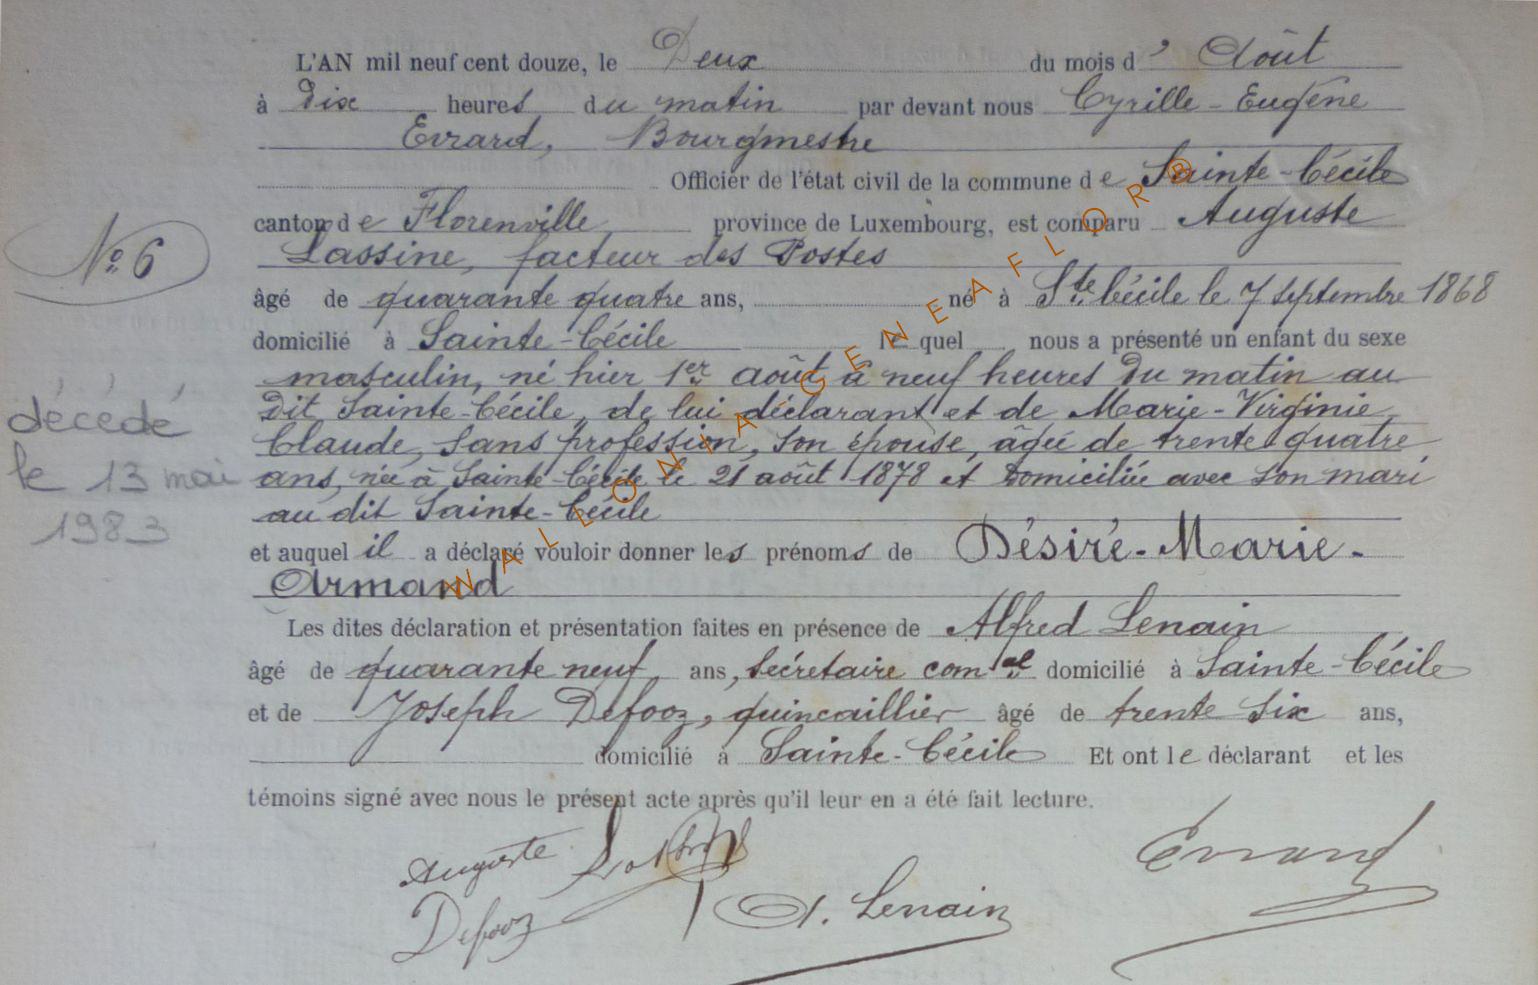 L'AN mil neuf cent douze, le Deux du mois d' Août
à Dix heures du matin par devant nous Cyrille - Eugène
Evrard, Bourgmestre
Officier de l'état civil de la commune de Sainte-Cécile
canton de Florenville province de Luxembourg, est comparu Auguste
Lassine, facteur des Postes
N° 6
âgé de quarante quatre ans, né à Ste Cécile le 7 septembre 1868
domicilié à Sainte-Cécile lequel nous a présenté un enfant du sexe
masculin, né hier 1er août à neuf heures du matin au
dit Sainte-Cécile, de lui déclarant et de Marie-Virginie
Claude, sans profession, son épouse, âgée de trente quatre
ans, née à Sainte-Cécile le 21 août 1878 et domiciliée avec son mari
au dit Sainte-Cécile
décédé
le 13 mai
1983
et auquel il a déclaré vouloir donner les prénoms de Désiré-Marie-
Armand
Les dites déclaration et présentation faites en présence de Alfred Lenain
âgé de quarante neuf ans, secrétaire comal domicilié à Sainte-Cécile
et de Joseph Defooz, quincaillier âgé de trente six ans,
domicilié à Sainte-Cécile Et ont le déclarant et les
témoins signé avec nous le présent acte après qu'il leur en a été fait lecture.
Auguste Evrard
Defooz A. Lenain
WALLONIA GENEAFLOR®